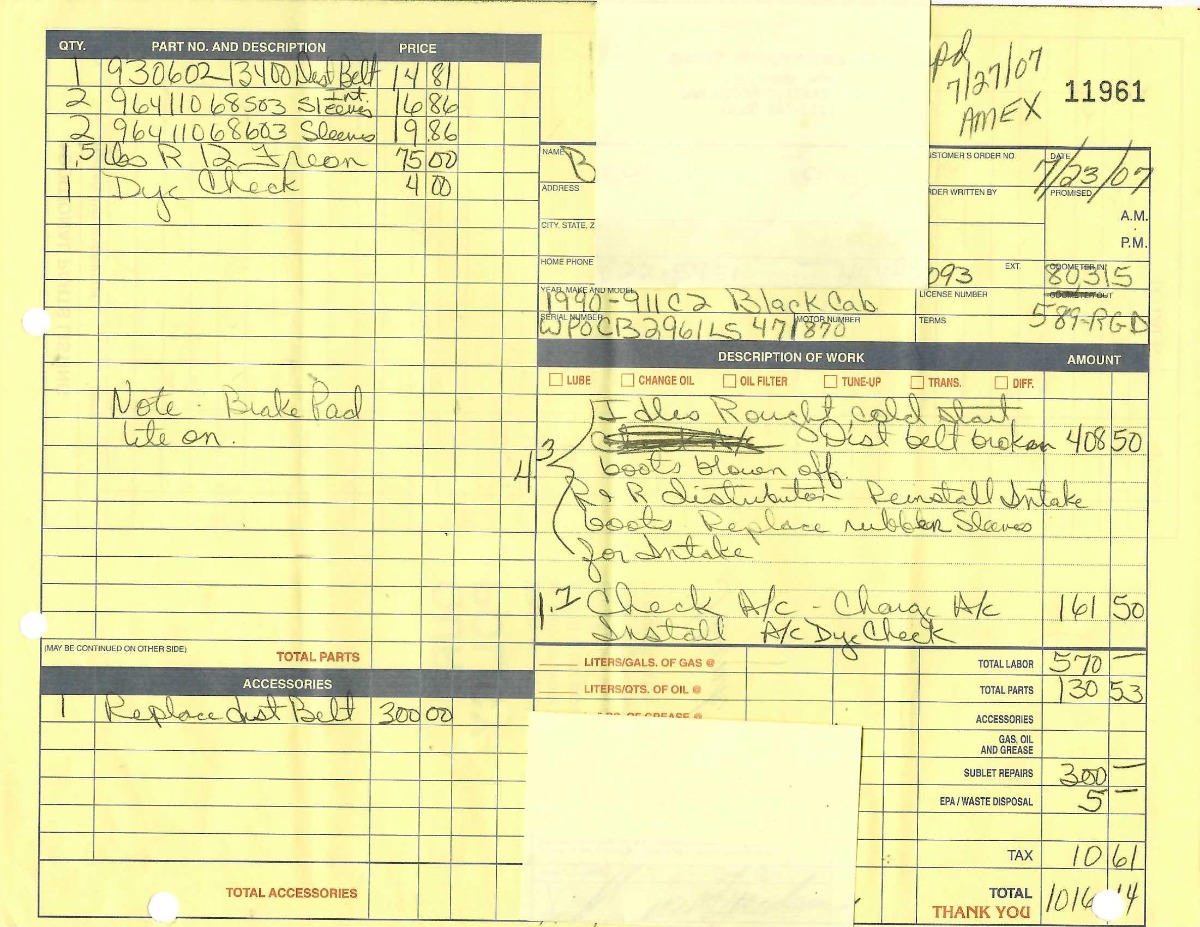 QTY. PART NO. AND DESCRIPTION PRICE
1 930602 13400 Dist Belt 14 81
2 96411068503 Int. Sleeves 16 86
2 96411068603 Sleeves 19 86
1,5 lbs R 12 Freon 75 00
1 Dye Check 4 00
Note - Brake Pad
lite on.
(MAY BE CONTINUED ON OTHER SIDE) TOTAL PARTS
ACCESSORIES
1 Replace dist Belt 300 00
TOTAL ACCESSORIES
pd
7/27/07
AMEX
11961
NAME B
CUSTOMER'S ORDER NO.
DATE 7/23/07
ADDRESS
ORDER WRITTEN BY
PROMISED
A.M.
P.M.
CITY, STATE, Z
HOME PHONE
093 EXT.
ODOMETER IN 80315
YEAR, MAKE AND MODEL
1990-911C2 Black Cab
LICENSE NUMBER
ODOMETER OUT
589-RGD
SERIAL NUMBER
WPOCB2961LS 471870
MOTOR NUMBER
TERMS
DESCRIPTION OF WORK AMOUNT
LUBE CHANGE OIL OIL FILTER TUNE-UP TRANS. DIFF.
Idles Rought cold start
Dist belt broken 408 50
4.3 boots blown off.
R & R distributor Reinstall Intake
boots. Replace rubber Sleeves
for Intake
1.7 Check A/c - Charge A/c 161 50
Install A/c Dye Check
LITERS/GALS. OF GAS @
TOTAL LABOR 570 —
LITERS/QTS. OF OIL @
TOTAL PARTS 130 53
ACCESSORIES
GAS, OIL
AND GREASE
SUBLET REPAIRS 300 —
EPA / WASTE DISPOSAL 5 —
TAX 10 61
TOTAL 1016 14
THANK YOU